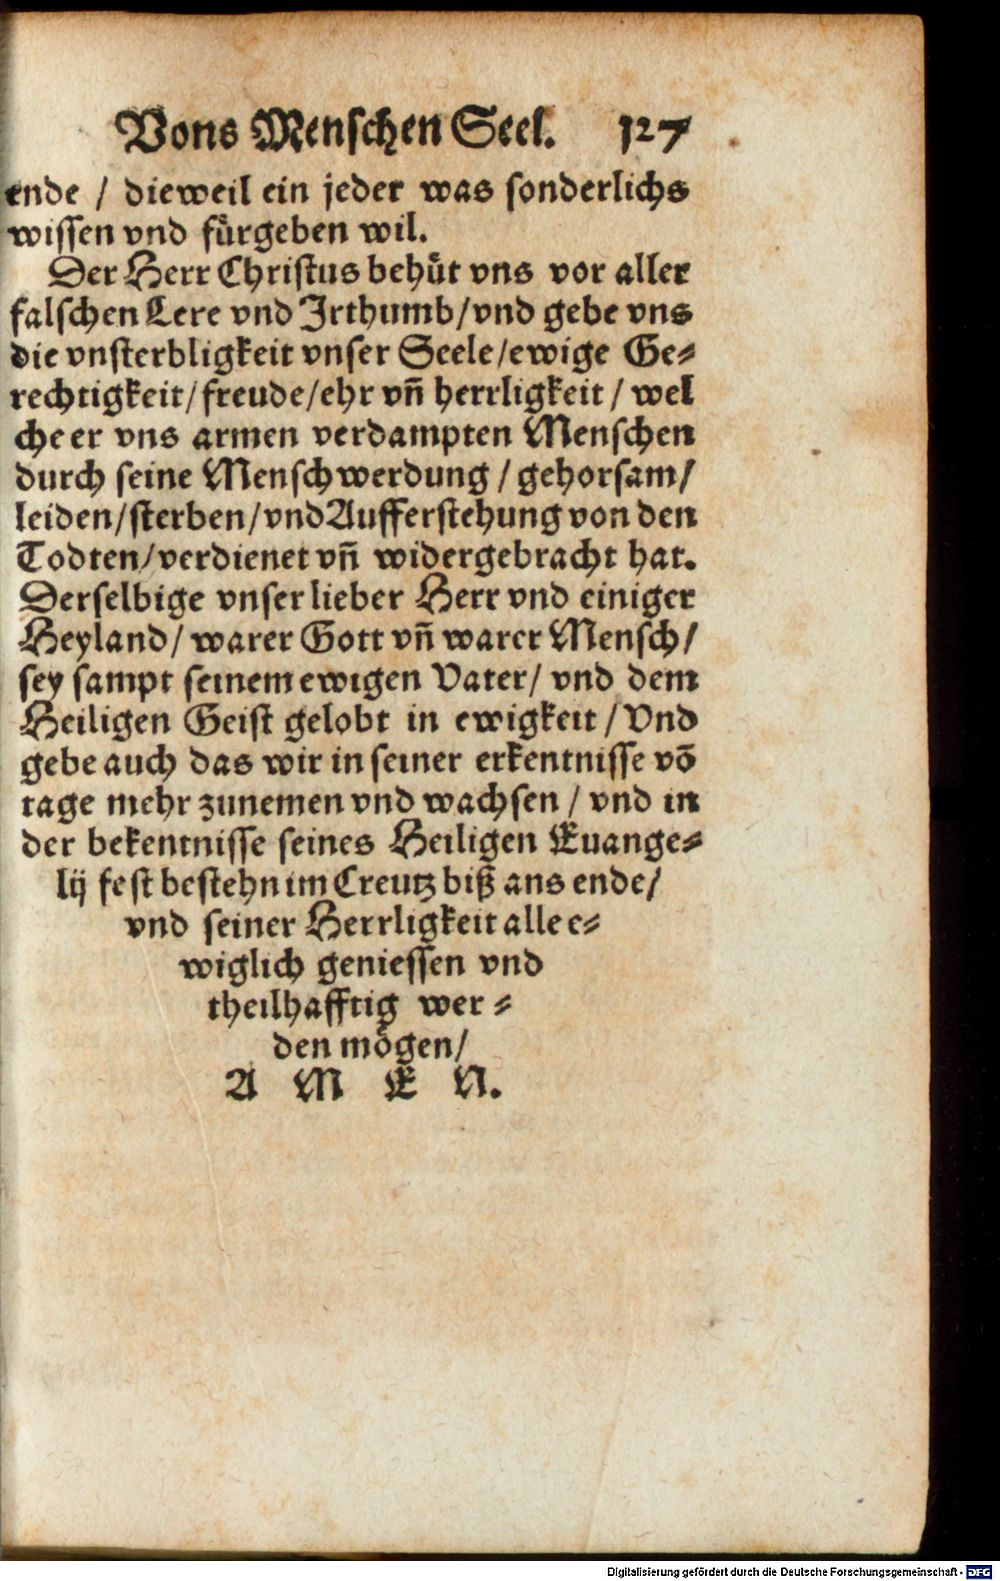 Vons Menschen Seel. 127
ende / dieweil ein jeder was sonderlichs
wissen vnd fürgeben wil.
Der Herr Christus behüt vns vor aller
falschen Lere vnd Jrthumb/vnd gebe vns
die vnsterbligkeit vnser Seele/ewige Ge-
rechtigkeit/freude/ehr vn̄ herrligkeit/wel
che er vns armen verdampten Menschen
durch seine Menschwerdung/gehorsam/
leiden/sterben/vnd Aufferstehung von den
Todten/verdienet vn̄ widergebracht hat.
Derselbige vnser lieber Herr vnd einiger
Heyland/warer Gott vn̄ warer Mensch/
sey sampt seinem ewigen Vater/vnd dem
Heiligen Geist gelobt in ewigkeit/Vnd
gebe auch das wir in seiner erkentnisse vō
tage mehr zunemen vnd wachsen/vnd in
der bekentnisse seines Heiligen Euange-
lij fest bestehn im Creutz biß ans ende/
vnd seiner Herrligkeit alle e-
wiglich geniessen vnd
theilhafftig wer-
den mögen/
A M E N.
Digitalisierung gefördert durch die Deutsche Forschungsgemeinschaft - DFG